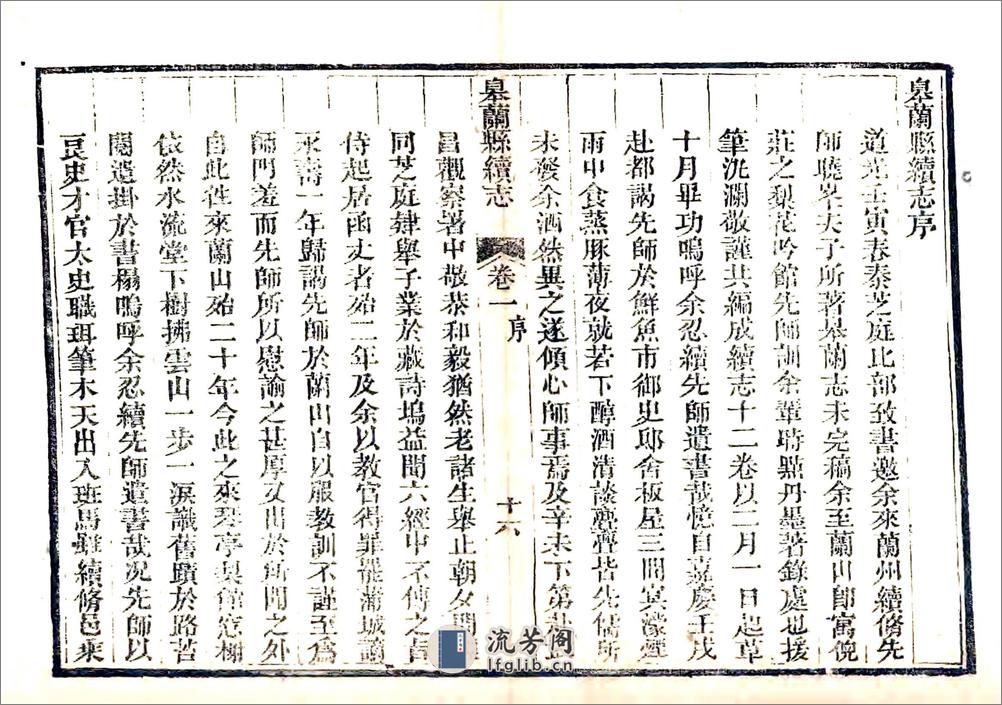 皋蘭縣續志序
道光壬寅春秦芝庭比部致書邀余來蘭州續脩先
師曉峯夫子所著皋蘭志未完稿余至蘭山即寓倪
莊之梨花吟館先師訓余輩時點丹墨著錄處也援
筆泫瀾敬謹共編成續志十二卷以二月一日起草
十月畢功嗚呼余忍續先師遺書哉憶自嘉慶壬戌
赴都謁先師於鮮魚市御史邸舍板屋三間冥濛煙
雨中食蒸豚薄夜就若下醇酒清談亹亹皆先儒所
未發余洒然異之遂傾心師事焉及辛未下第
皋蘭縣續志
卷一
序
十六
昌觀察署中敬恭和毅猶然老諸生舉止朝夕
同芝庭肄舉子業於藏詩塢益聞六經中不傳之旨
侍起居函丈者殆二年及余以教官得罪罷蒲城
永壽一年歸謁先師於蘭山自以服教訓不謹至爲
師門羞而先師所以慰諭之甚厚又出於所聞之外
自此往來蘭山殆二十年今此之來琴亭梨館窓櫺
依然水流堂下樹拂雲山一步一淚識舊蹟於路苦
闇遣掛於書榻嗚呼余忍續先師遺書哉況先師以
良史才官太史職珥筆木天出入班馬雖續脩邑乘
流芳阁
lfglib.cn